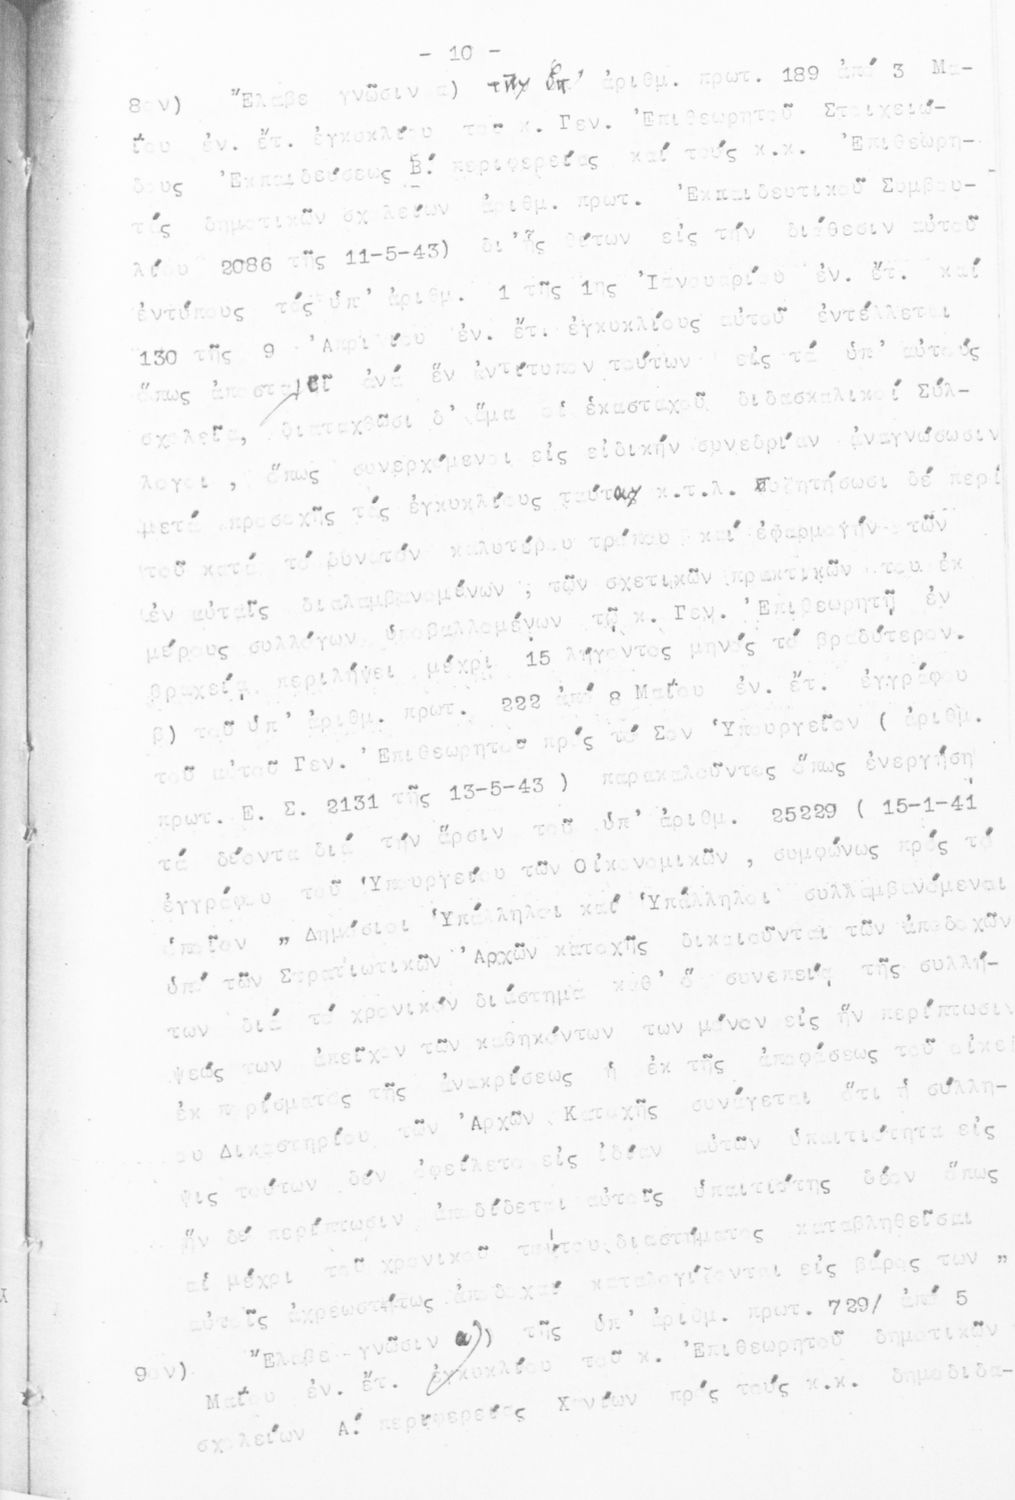 - 10 -
8ον) "Ελαβε γνῶσιν α) τὴν ὑπ' ἀριθμ. πρωτ. 189 ἀπό 3 Μα-
ΐου ἐν. ἔτ. ἐγκυκλίου τοῦ κ. Γεν. Ἐπιθεωρητοῦ Στοιχειώ-
δους Ἐκπαιδεύσεως Β΄. περιφερείας καί τούς κ.κ. Ἐπιθεωρη-
τάς δημοτικῶν σχολείων ἀριθμ. πρωτ. Ἐκπαιδευτικοῦ Συμβου-
λίου 2086 τῆς 11-5-43) δι' ἧς θέτων εἰς τήν διάθεσιν αὐτοῦ
ἐντύπους τάς ὑπ' ἀριθμ. 1 τῆς 1ης Ἰανουαρίου ἐν. ἔτ. καί
130 τῆς 9 Ἀπριλίου ἐν. ἔτ. ἐγκυκλίους αὐτοῦ ἐντέλλεται
ὅπως ἀποσταλεῖ ἀνά ἕν ἀντίτυπον τούτων εἰς τά ὑπ' αὐτούς
σχολεῖα, διαταχθῶσι δ' ἅμα οἱ ἑκασταχοῦ διδασκαλικοί Σύλ-
λογοι , ὅπως συνερχόμενοι εἰς εἰδικήν συνεδρίαν ἀναγνώσωσιν
μετά προσοχῆς τάς ἐγκυκλίους ταύτας κ.τ.λ. συζητήσωσι δέ περί
τοῦ κατά τό δυνατόν καλυτέρου τρόπου καί ἐφαρμογήν τῶν
ἐν αὐταῖς διαλαμβανομένων ; τῶν σχετικῶν πρακτικῶν του ἐκ
μέρους συλλόγων ὑποβαλλομένων τῷ κ. Γεν. Ἐπιθεωρητῇ ἐν
βραχείᾳ περιλήψει μέχρι 15 λήγοντος μηνός τό βραδύτερον.
β) τοῦ ὑπ' ἀριθμ. πρωτ. 222 ἀπό 8 Μαΐου ἐν. ἔτ. ἐγγράφου
τοῦ αὐτοῦ Γεν. Ἐπιθεωρητοῦ πρός τό Σον Ὑπουργεῖον ( ἀριθμ.
πρωτ. Ε. Σ. 2131 τῆς 13-5-43 ) παρακαλοῦντος ὅπως ἐνεργήσῃ
τά δέοντα διά τήν ἄρσιν τοῦ ὑπ' ἀριθμ. 25229 ( 15-1-41
ἐγγράφου τοῦ Ὑπουργείου τῶν Οἰκονομικῶν , συμφώνως πρός τό
ὁποῖον " Δημόσιοι Ὑπάλληλοι καί Ὑπάλληλοι συλλαμβανόμενοι
ὑπό τῶν Στρατιωτικῶν Ἀρχῶν κατοχῆς δικαιοῦνται τῶν ἀποδοχῶν
των διά τό χρονικόν διάστημα καθ' ὅ συνεπείᾳ τῆς συλλή-
ψεώς των ἀπεῖχον τῶν καθηκόντων των μόνον εἰς ἥν περίπτωσιν
ἐκ πορίσματος τῆς ἀνακρίσεως ἤ ἐκ τῆς ἀποφάσεως τοῦ οἰκεί
ου Δικαστηρίου τῶν Ἀρχῶν Κατοχῆς συνάγεται ὅτι ἡ σύλλη-
ψις τούτων δέν ὀφείλετο εἰς ἰδίαν αὐτῶν ὑπαιτιότητα εἰς
ἥν δέ περίπτωσιν ἀποδίδεται αὐτοῖς ὑπαιτιότης δέον ὅπως
αἱ μέχρι τοῦ χρονικοῦ τούτου διαστήματος καταβληθεῖσαι
αὐτοῖς ἀχρεωστήτως ἀποδοχαί καταλογίζονται εἰς βάρος των "
9ον) "Ελαβε γνῶσιν α) τῆς ὑπ' ἀριθμ. πρωτ. 729/ ἀπό 5
Μαΐου ἐν. ἔτ. ἐγκυκλίου τοῦ κ. Ἐπιθεωρητοῦ δημοτικῶν
σχολείων Α΄. περιφερείας Χανίων πρός τούς κ.κ. δημοδιδα-